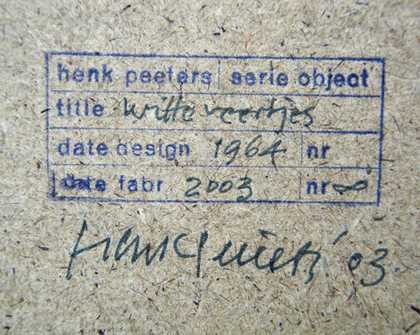 henk peeters serie object
title witte veertjes
date design 1964 nr
date fabr 2003 nr ∞
henk peeters '03